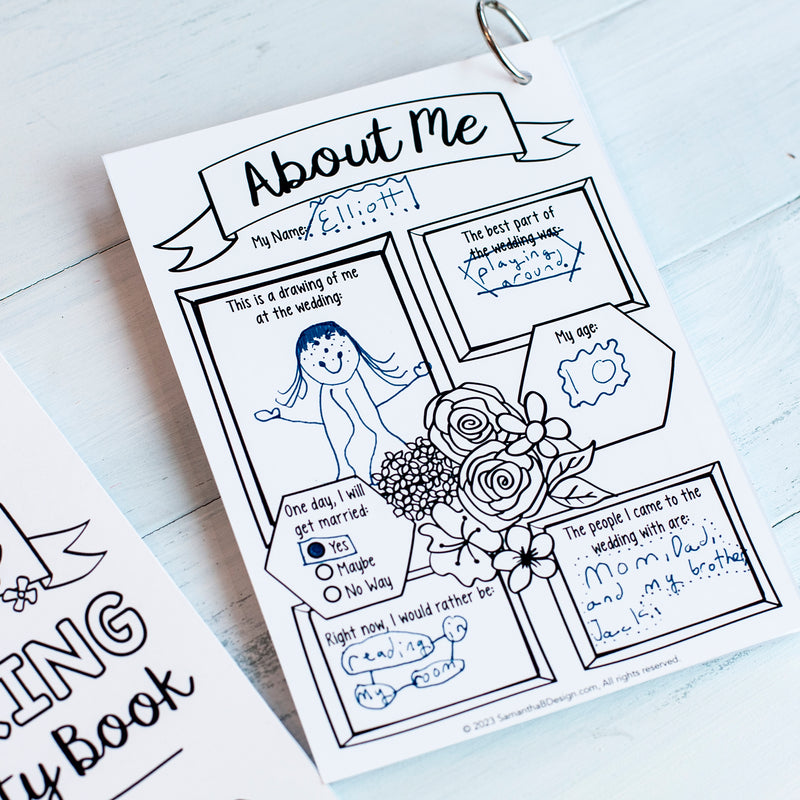 About Me
My Name: Elliott
This is a drawing of me
at the wedding:
The best part of
the wedding was:
playing
around.
My age:
10
One day, I will
get married:
Yes
Maybe
No Way
The people I came to the
wedding with are:
Mom, Dad,
and my brother
Jack.
Right now, I would rather be:
reading in
my room
© 2023 SamanthaBDesign.com, All rights reserved.
ING
ty Book